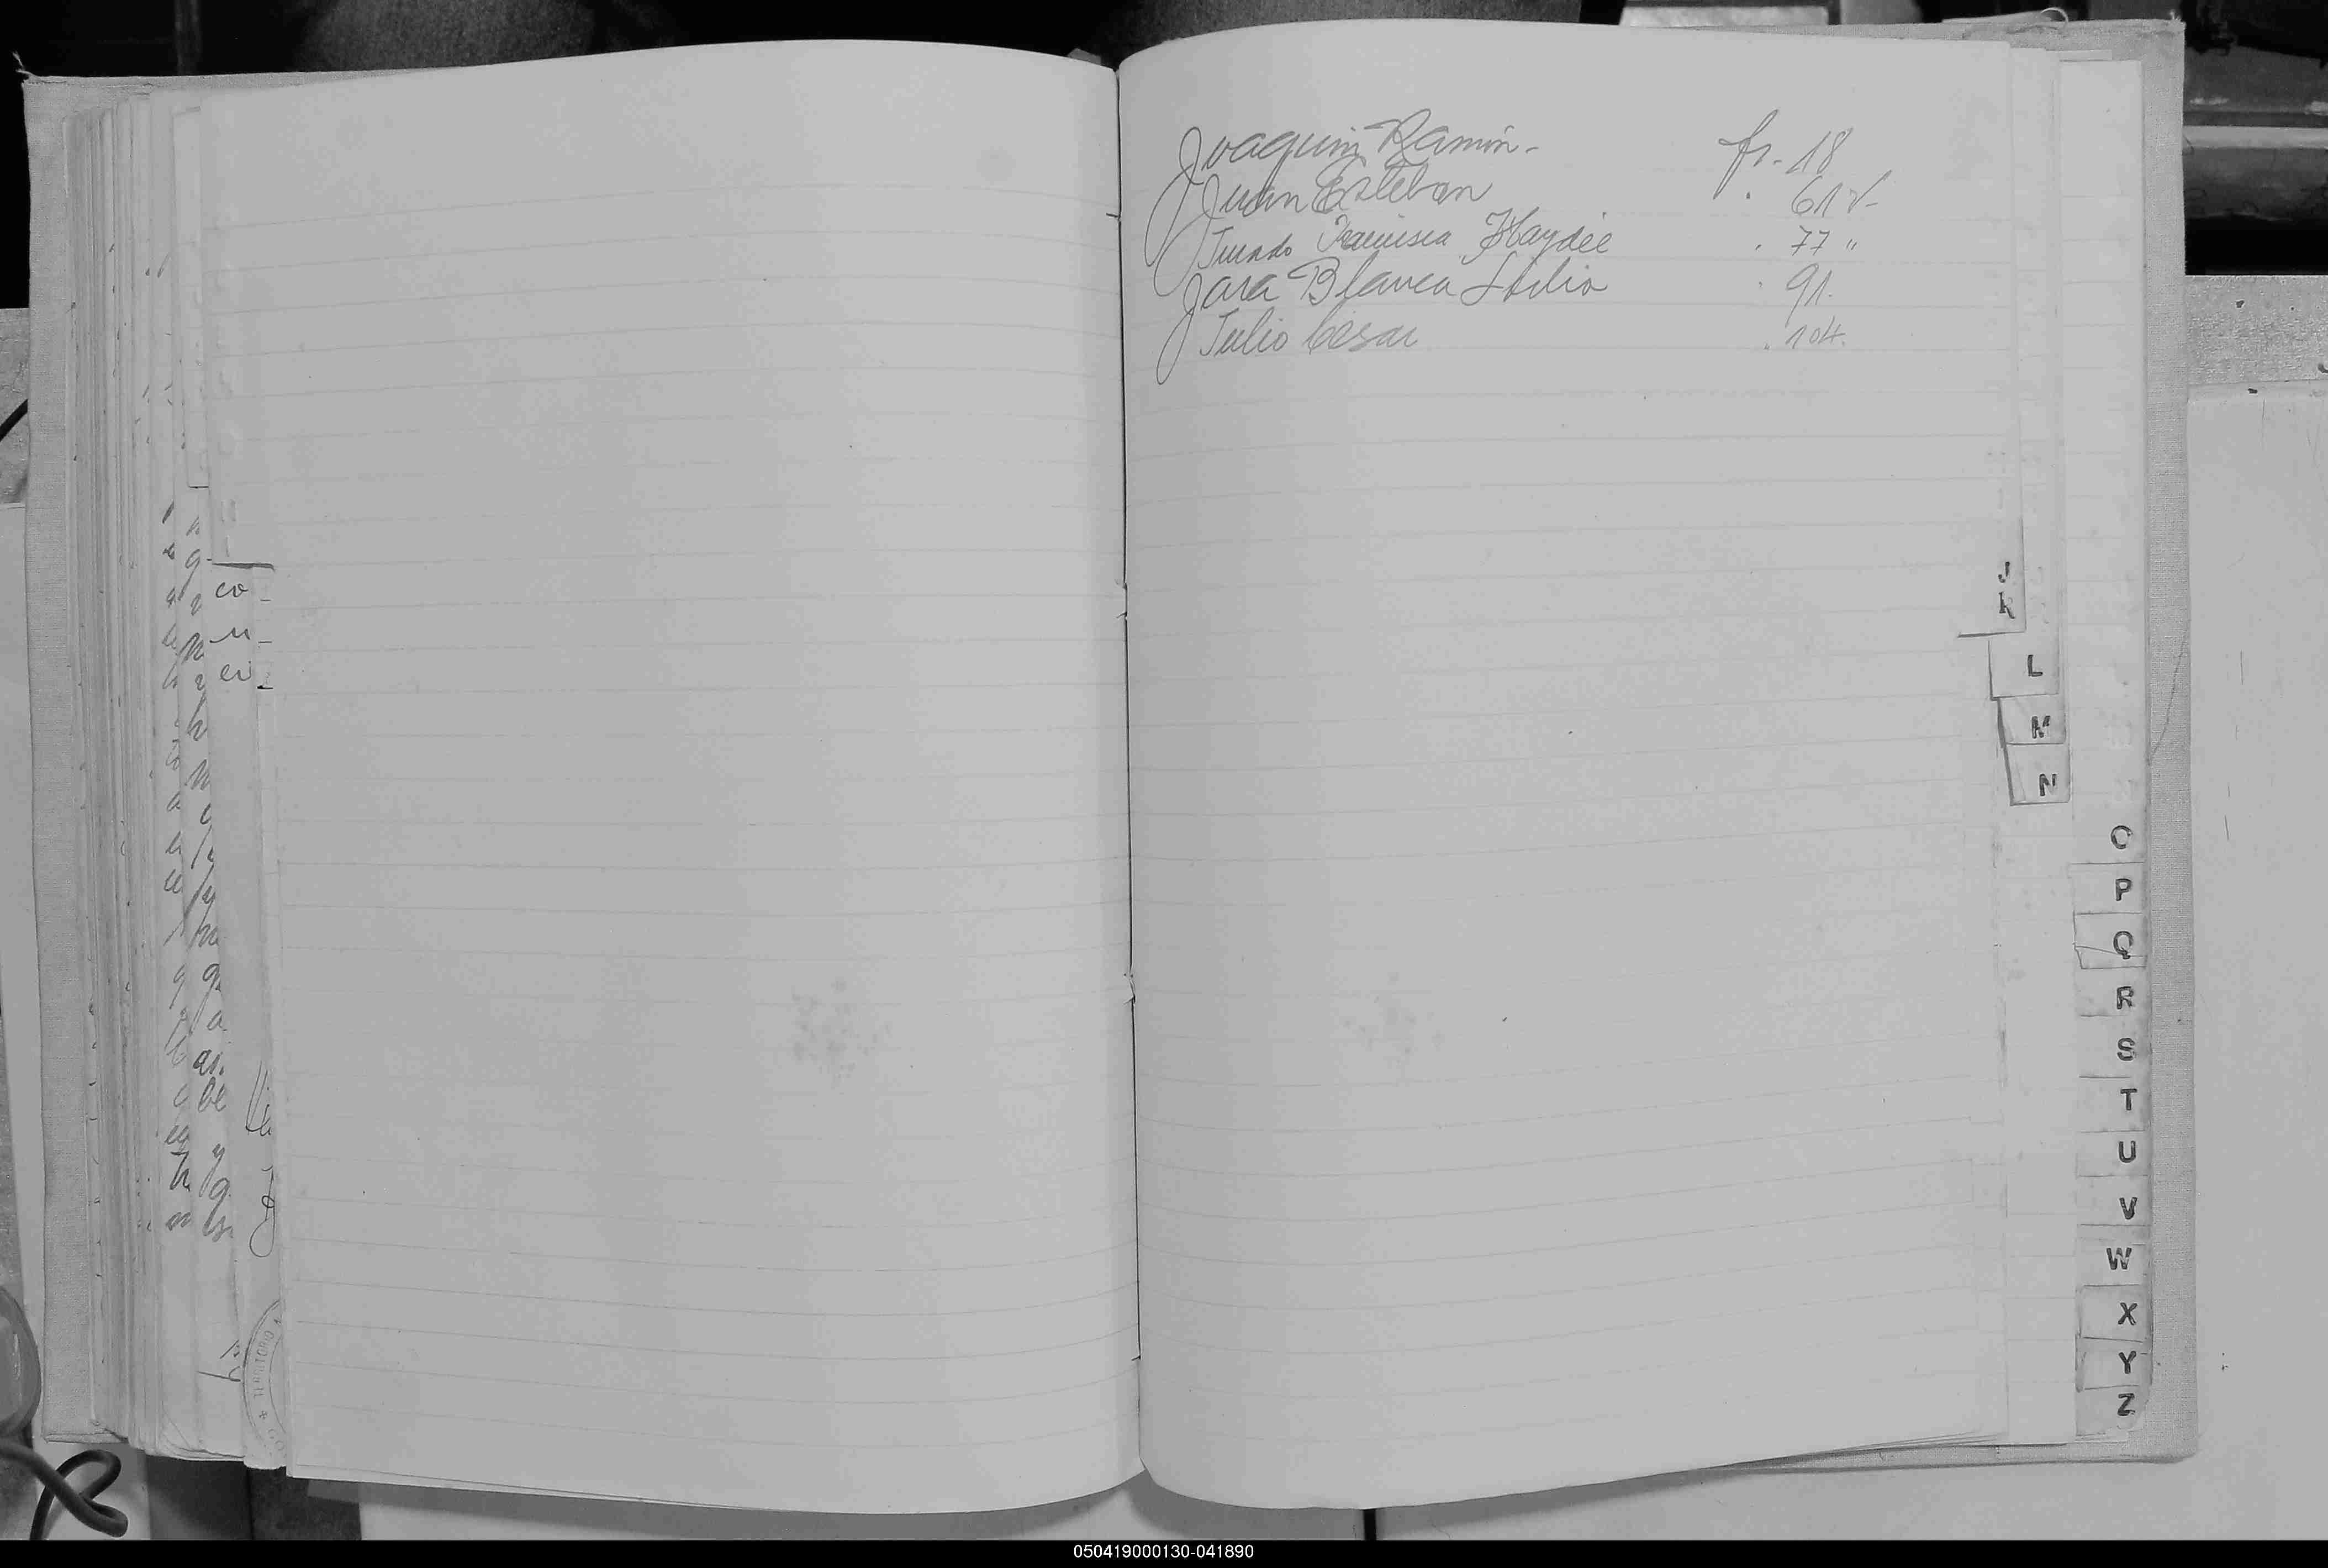 Joaquin Ramón - fs. 18
Juan Esteban . 61 v-
Jurado Francisca Haydée . 77 "
Jara Blanca Otilia . 91.
Julio César . 104.
J
K
L
M
N
O
P
Q
R
S
T
U
V
W
X
Y
Z
co
TERRITORIO
050419000130-041890